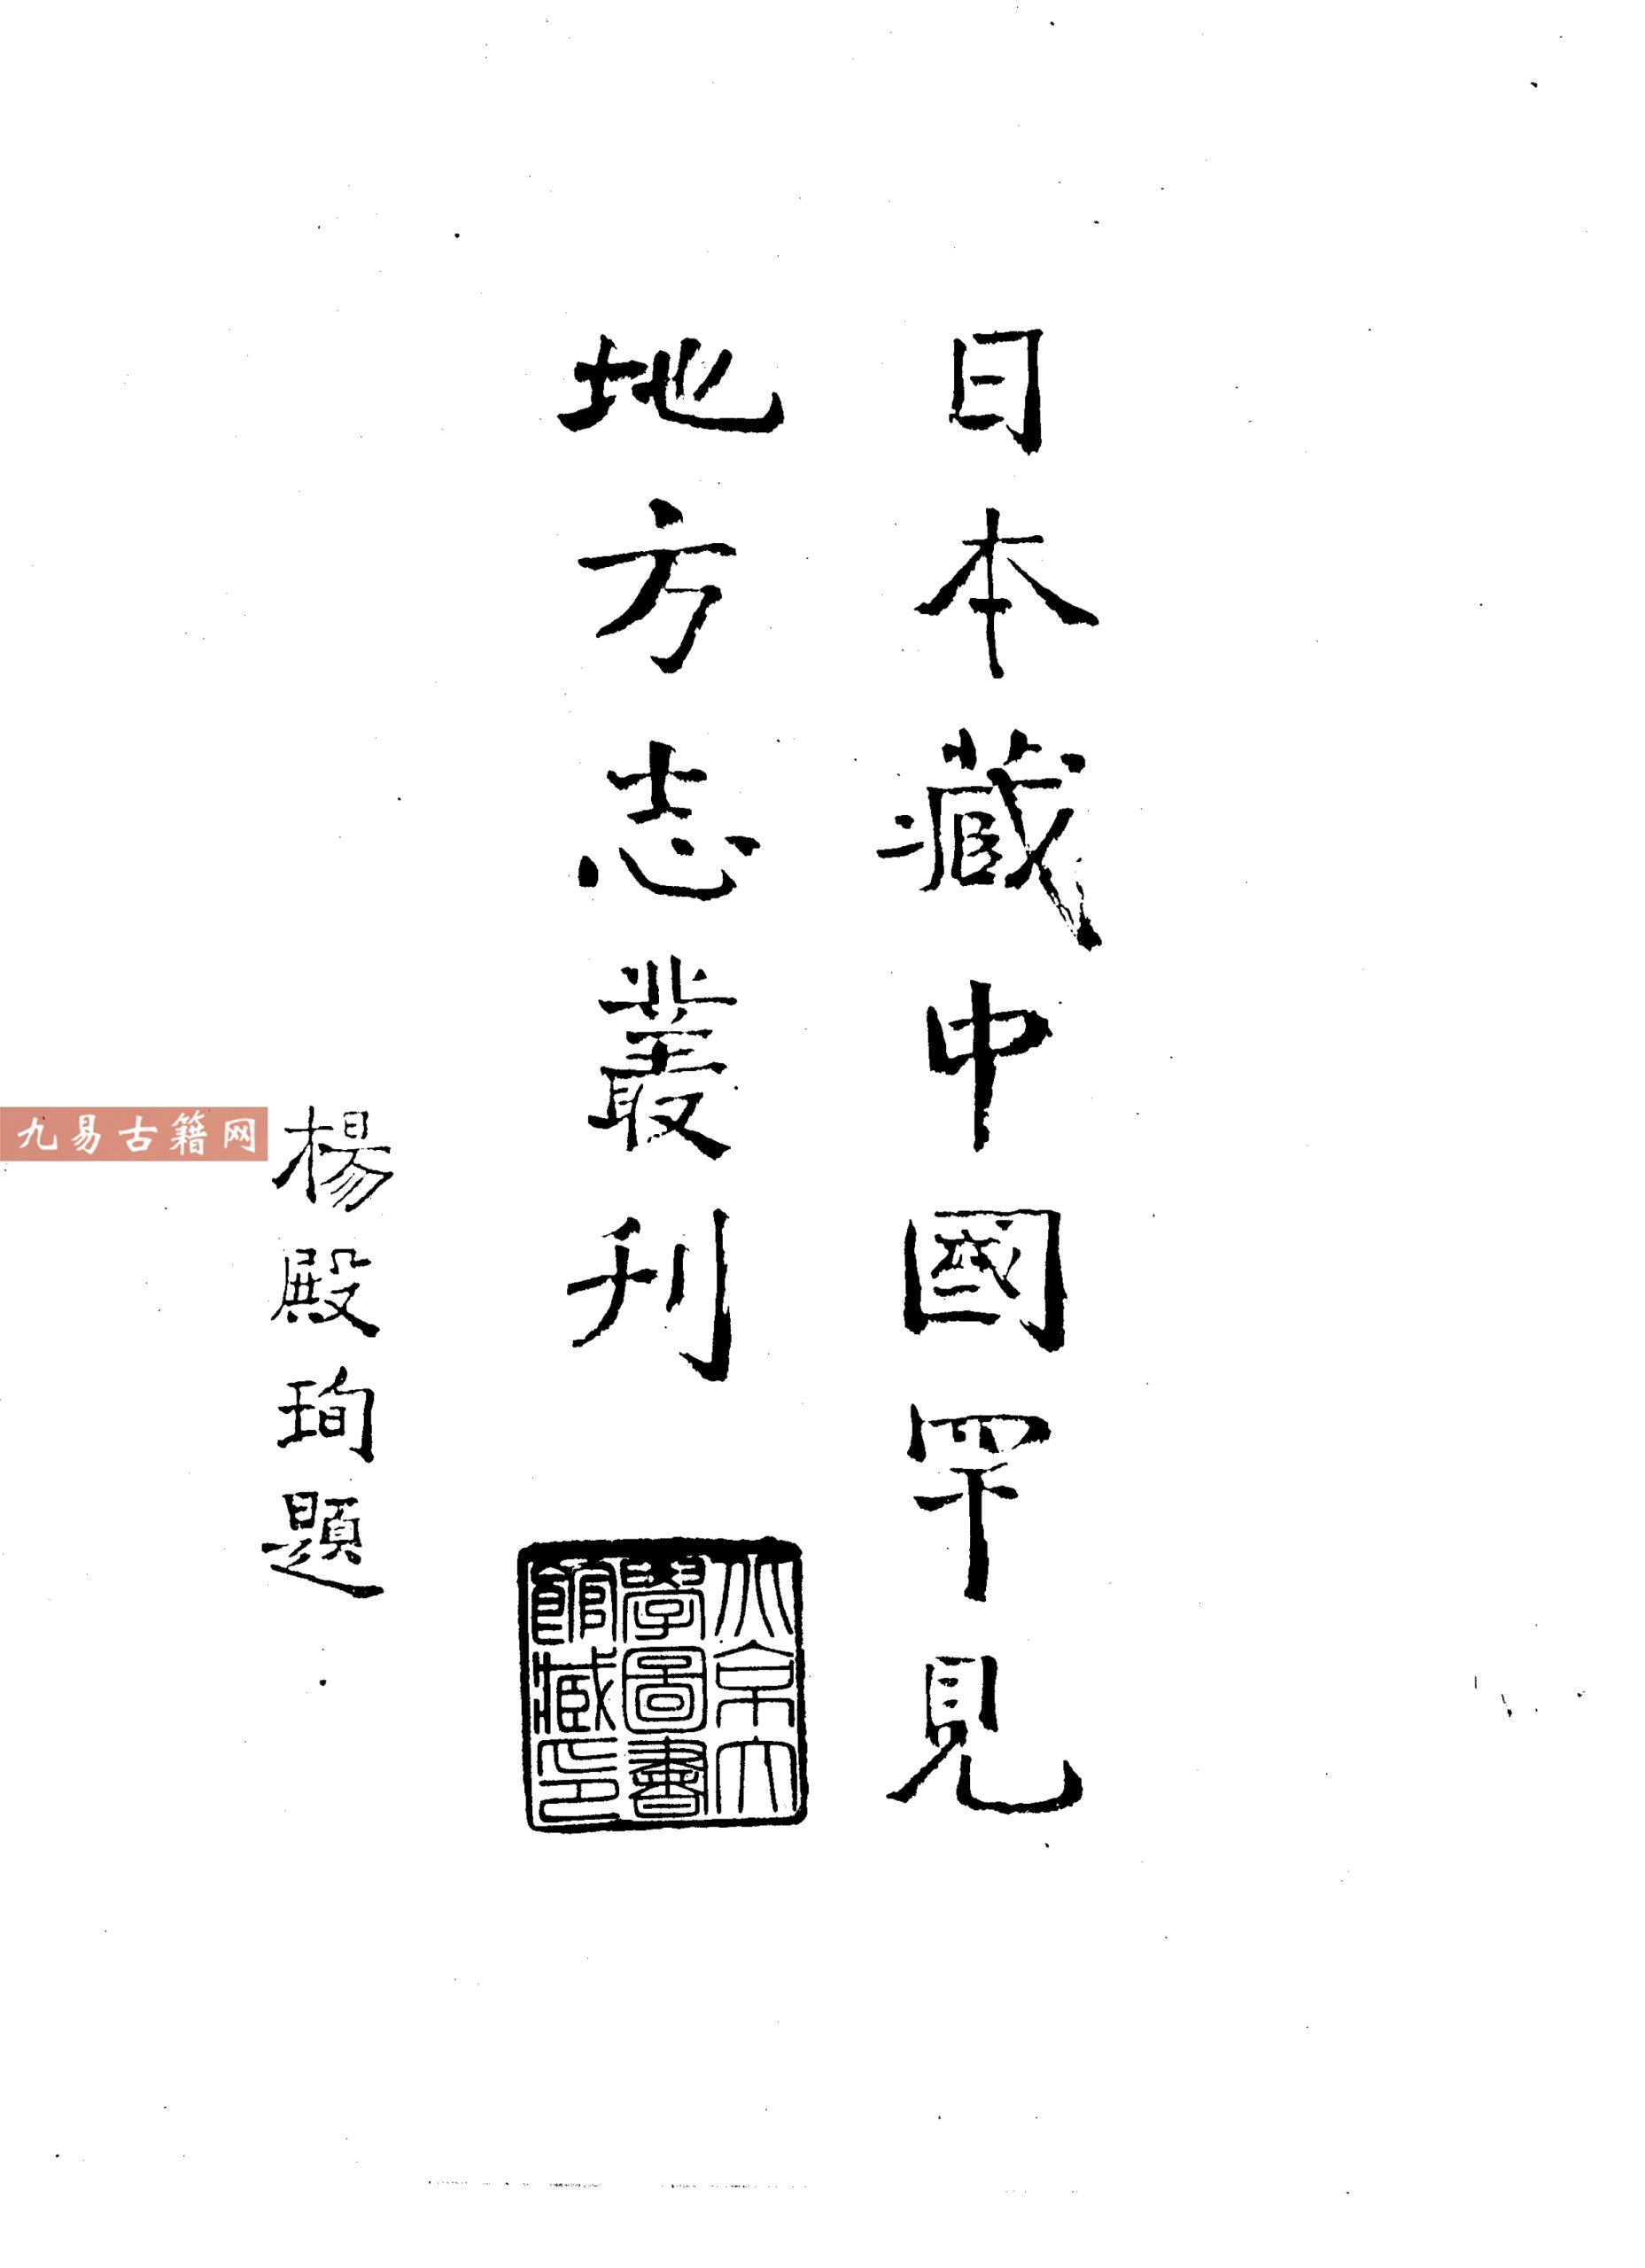 日本藏中國罕見
地方志叢刊
楊殿珣題
北京大
學圖書
館藏印
九易古籍网